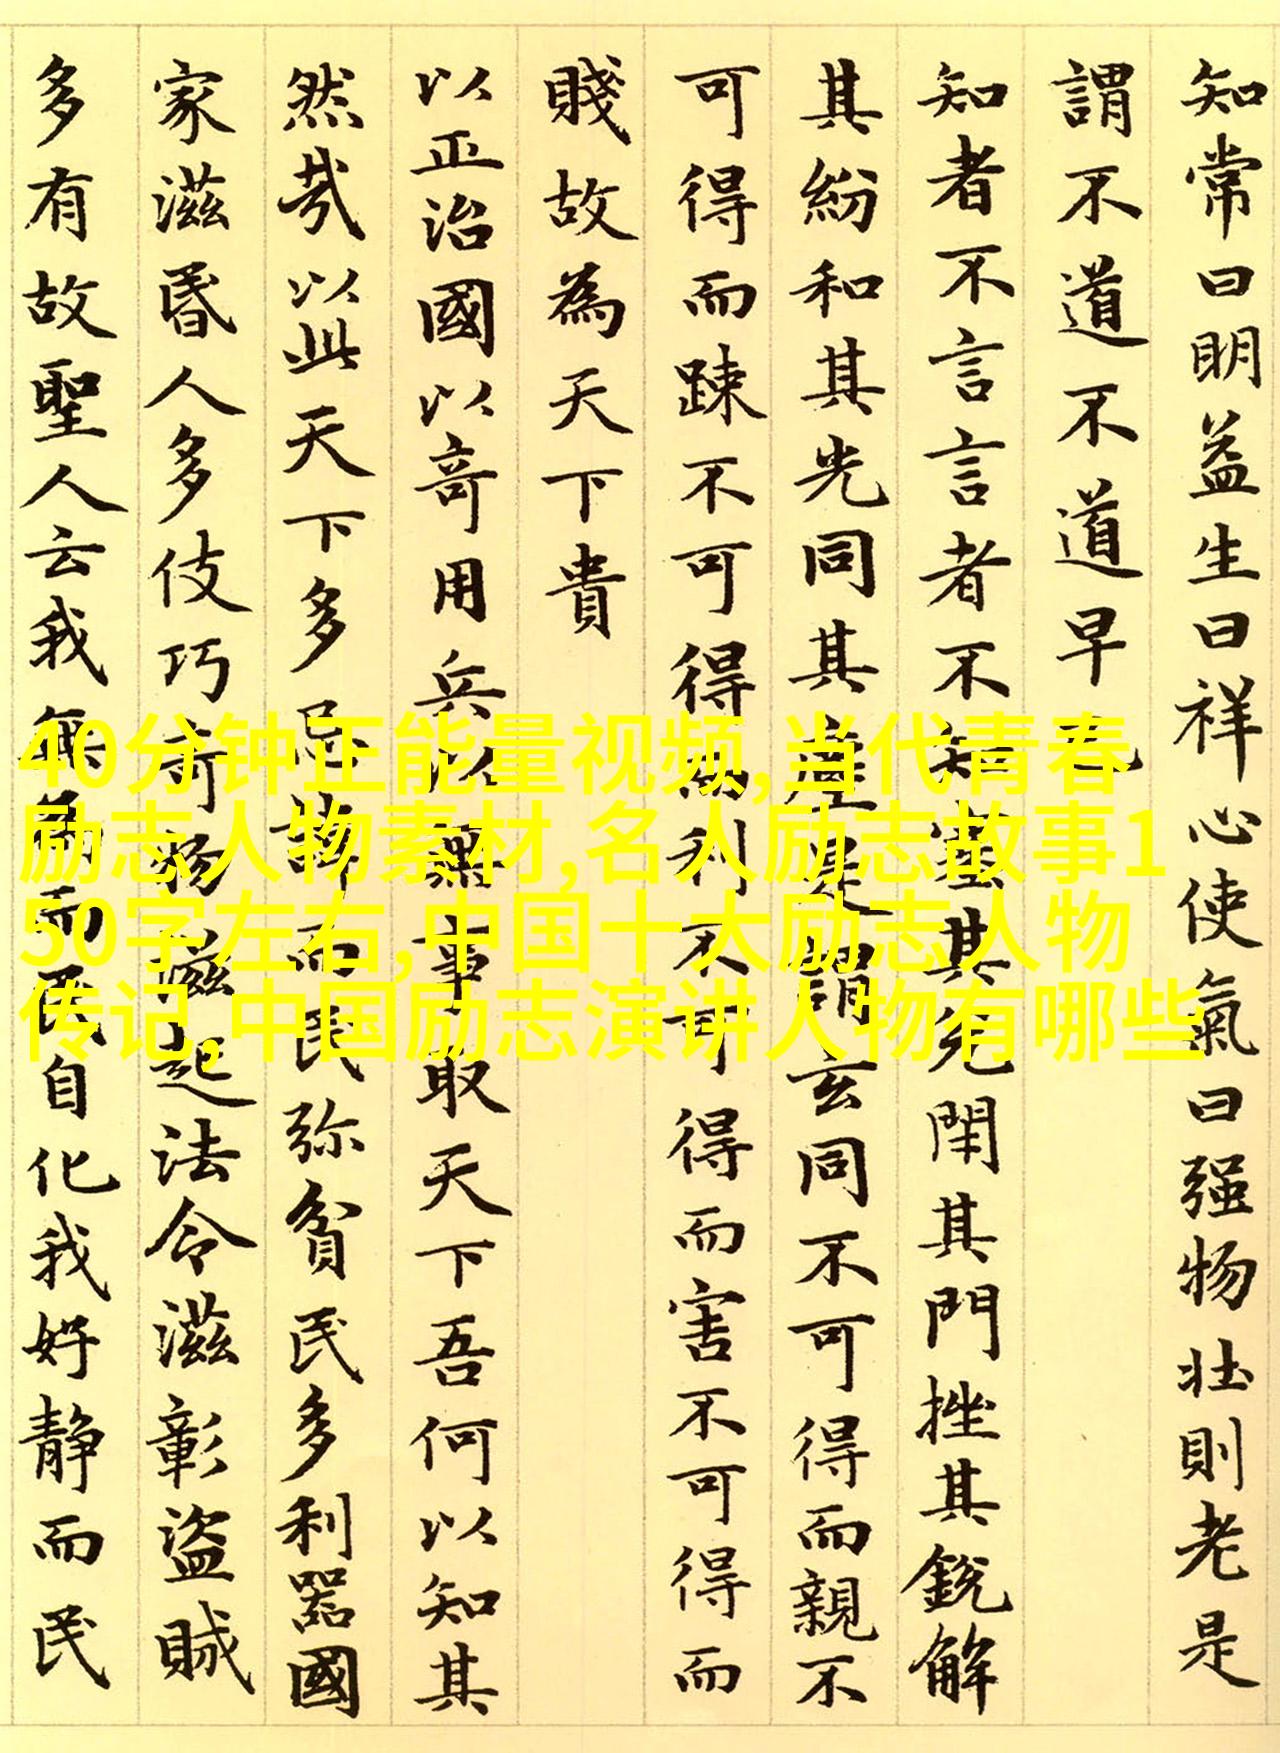 知常曰明益生曰祥心使氣曰强物壯則老是
謂不道不道早已
知者不言言者不知塞其兑閇其門挫其銳解
其紛和其光同其塵是謂玄同不可得而親不
可得而踈不可得而利不可得而害不可得而
賤故為天下貴
以正治國以奇用兵以無事取天下吾何以知其
然哉以此天下多忌諱而民弥貧民多利器國
家滋昬人多伎巧奇物滋起法令滋彰盜賊
多有故聖人云我無為而民自化我好静而民
40分钟正能量视频,当代青春
励志人物素材,名人励志故事1
50字左右,中国十大励志人物
传记,中国励志演讲人物有哪些